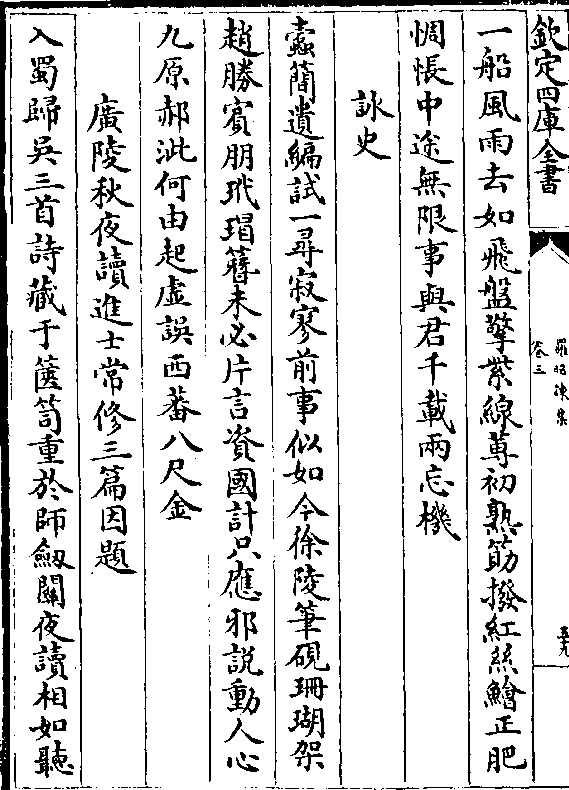 欽定四庫全書
羅昭諫集
卷三
一船風雨去如飛盤擎紫線蓴初熟筯撥紅絲鱠正肥
惆悵中途無限事與君千載兩忘機
詠史
蠧蕳遺編試一尋寂寥前事似如今徐陵筆硯珊瑚架
趙勝賓朋玳瑁簪未必片言資國計只應邪説動人心
九原郝泚何由起虚誤西蕃八尺金
廣陵秋夜讀進士常修三篇因題
入蜀歸吳三首詩藏于篋笥重於師劔闗夜讀相如聽